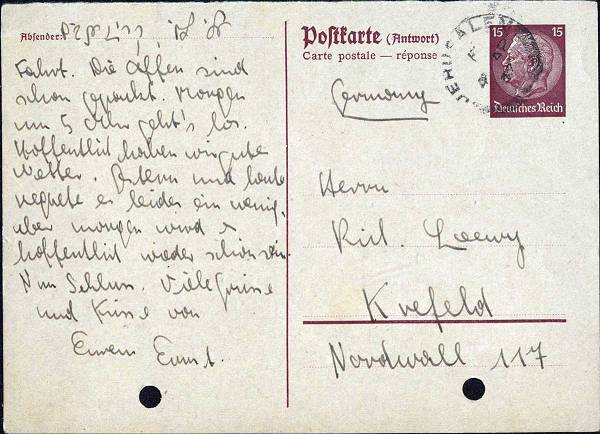 Absender:
Fahrt. Die Affen sind
schon gepackt. Morgen
um 5 Uhr geht's los.
Hoffentlich haben wir gute
Wetter. Gestern und heute
regnete es leider ein wenig,
aber morgen wird es
hoffentlich wieder schön sein.
Nun Schluss. Viele Grüsse
und Küsse von
Eurem Ernst.
Postkarte (Antwort)
Carte postale — réponse
JERUSALEM
15 15
Deutsches Reich
Germany
Herrn
Rich. Loewy
Krefeld
Nordwall 117